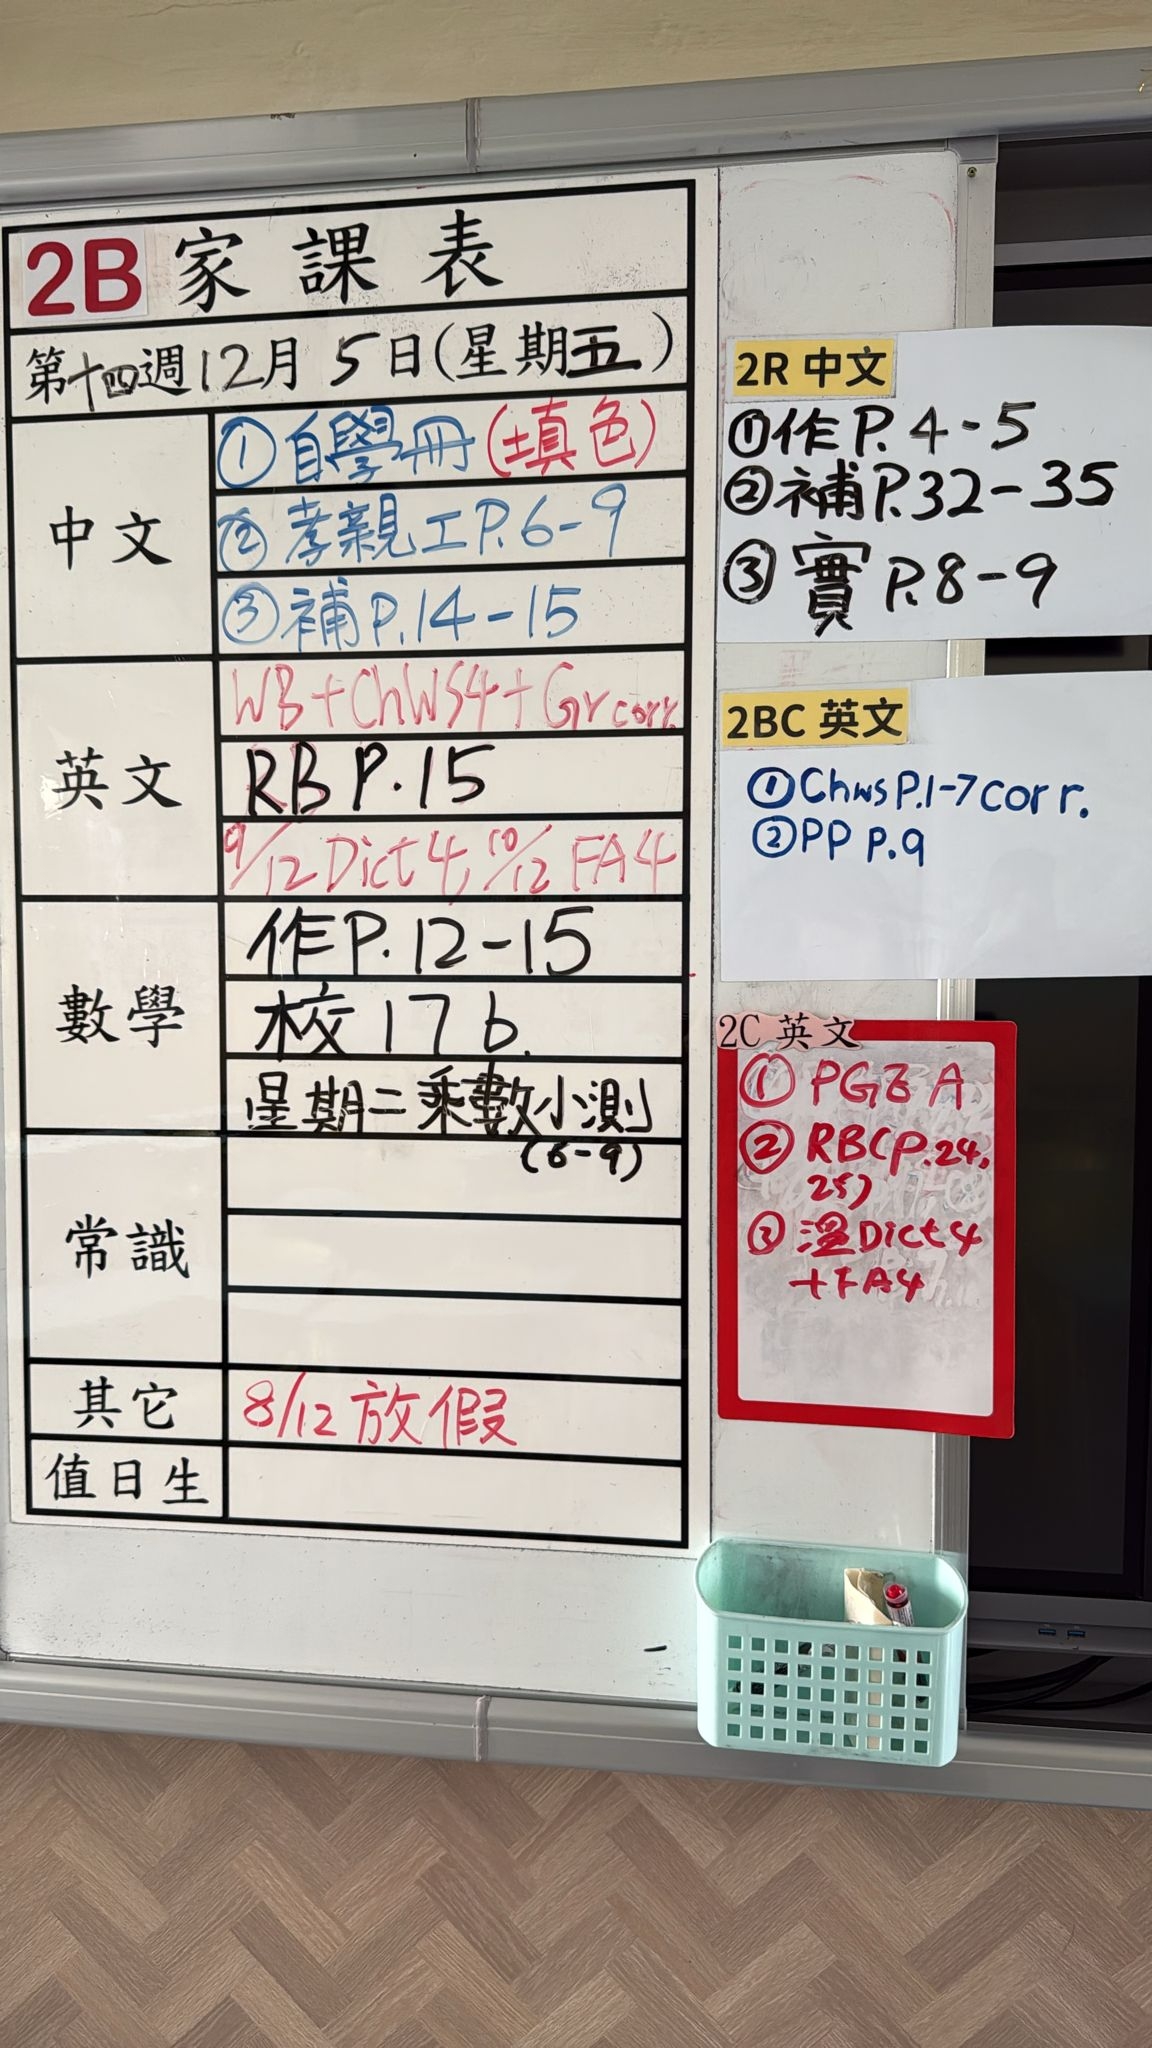 2B 家課表
第十四週12月5日(星期五)
中文
①自學冊(填色)
②孝親工P.6-9
③補P.14-15
英文
WB+ChWS4+Gr corr.
RB P.15
9/12 Dict 4, 10/12 FA4
數學
作P.12-15
校17b.
星期二乘數小測
(6-9)
常識
其它
8/12放假
值日生
2R 中文
①作P.4-5
②補P.32-35
③實P.8-9
2BC 英文
①Chws P.1-7 corr.
②PP P.9
2C 英文
① A
②RB(P.24,
25)
③溫Dict 4
+FA4